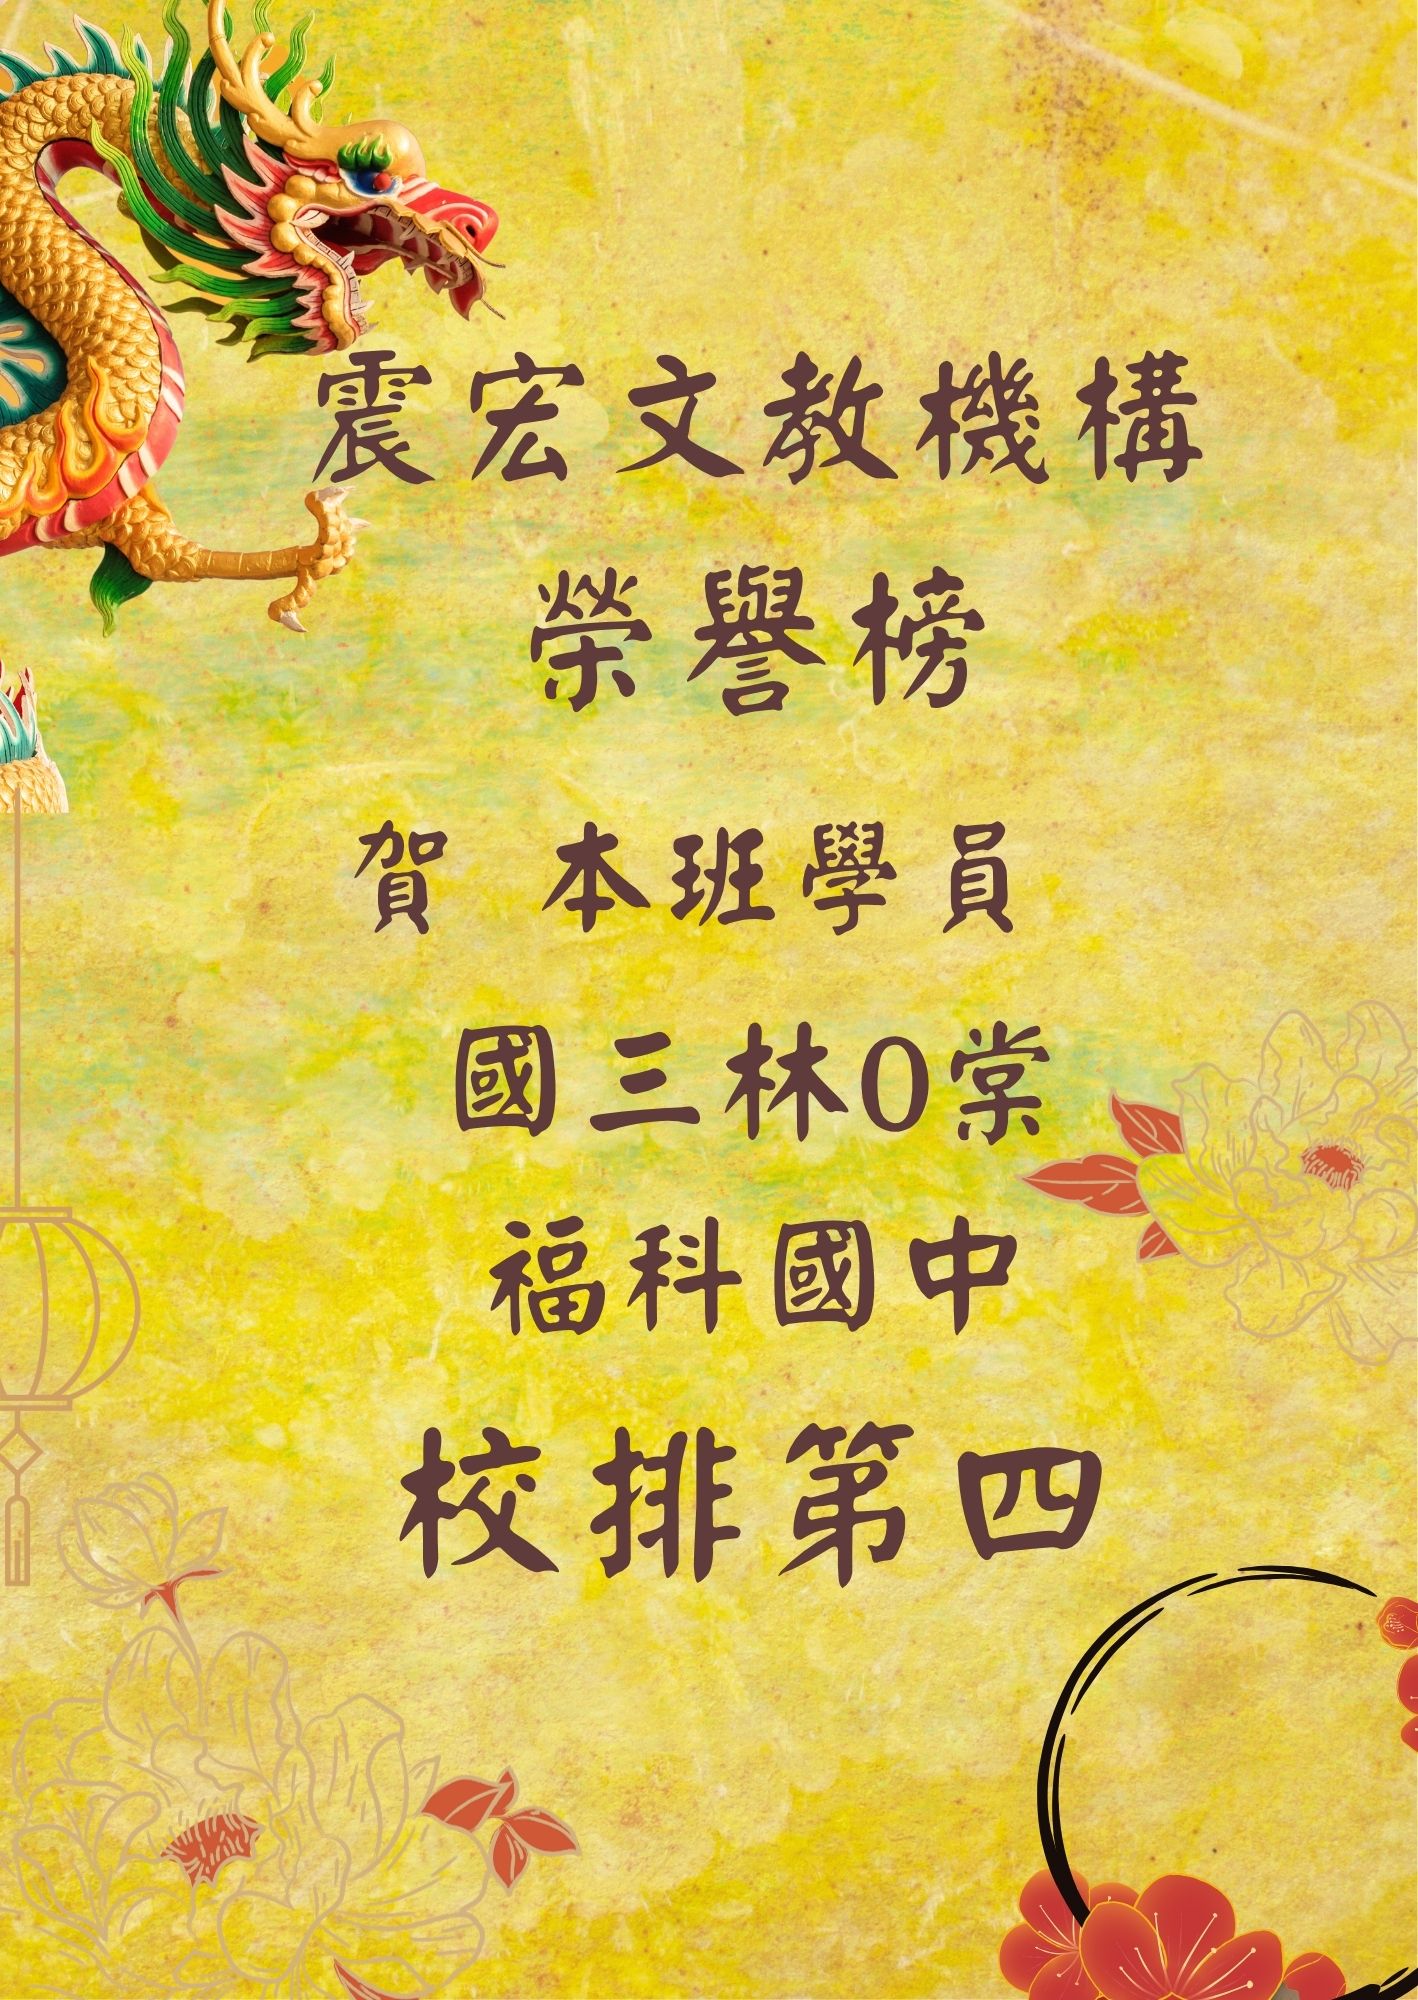 震宏文教機構
榮譽榜
賀 本班學員
國三林O棠
福科國中
校排第四